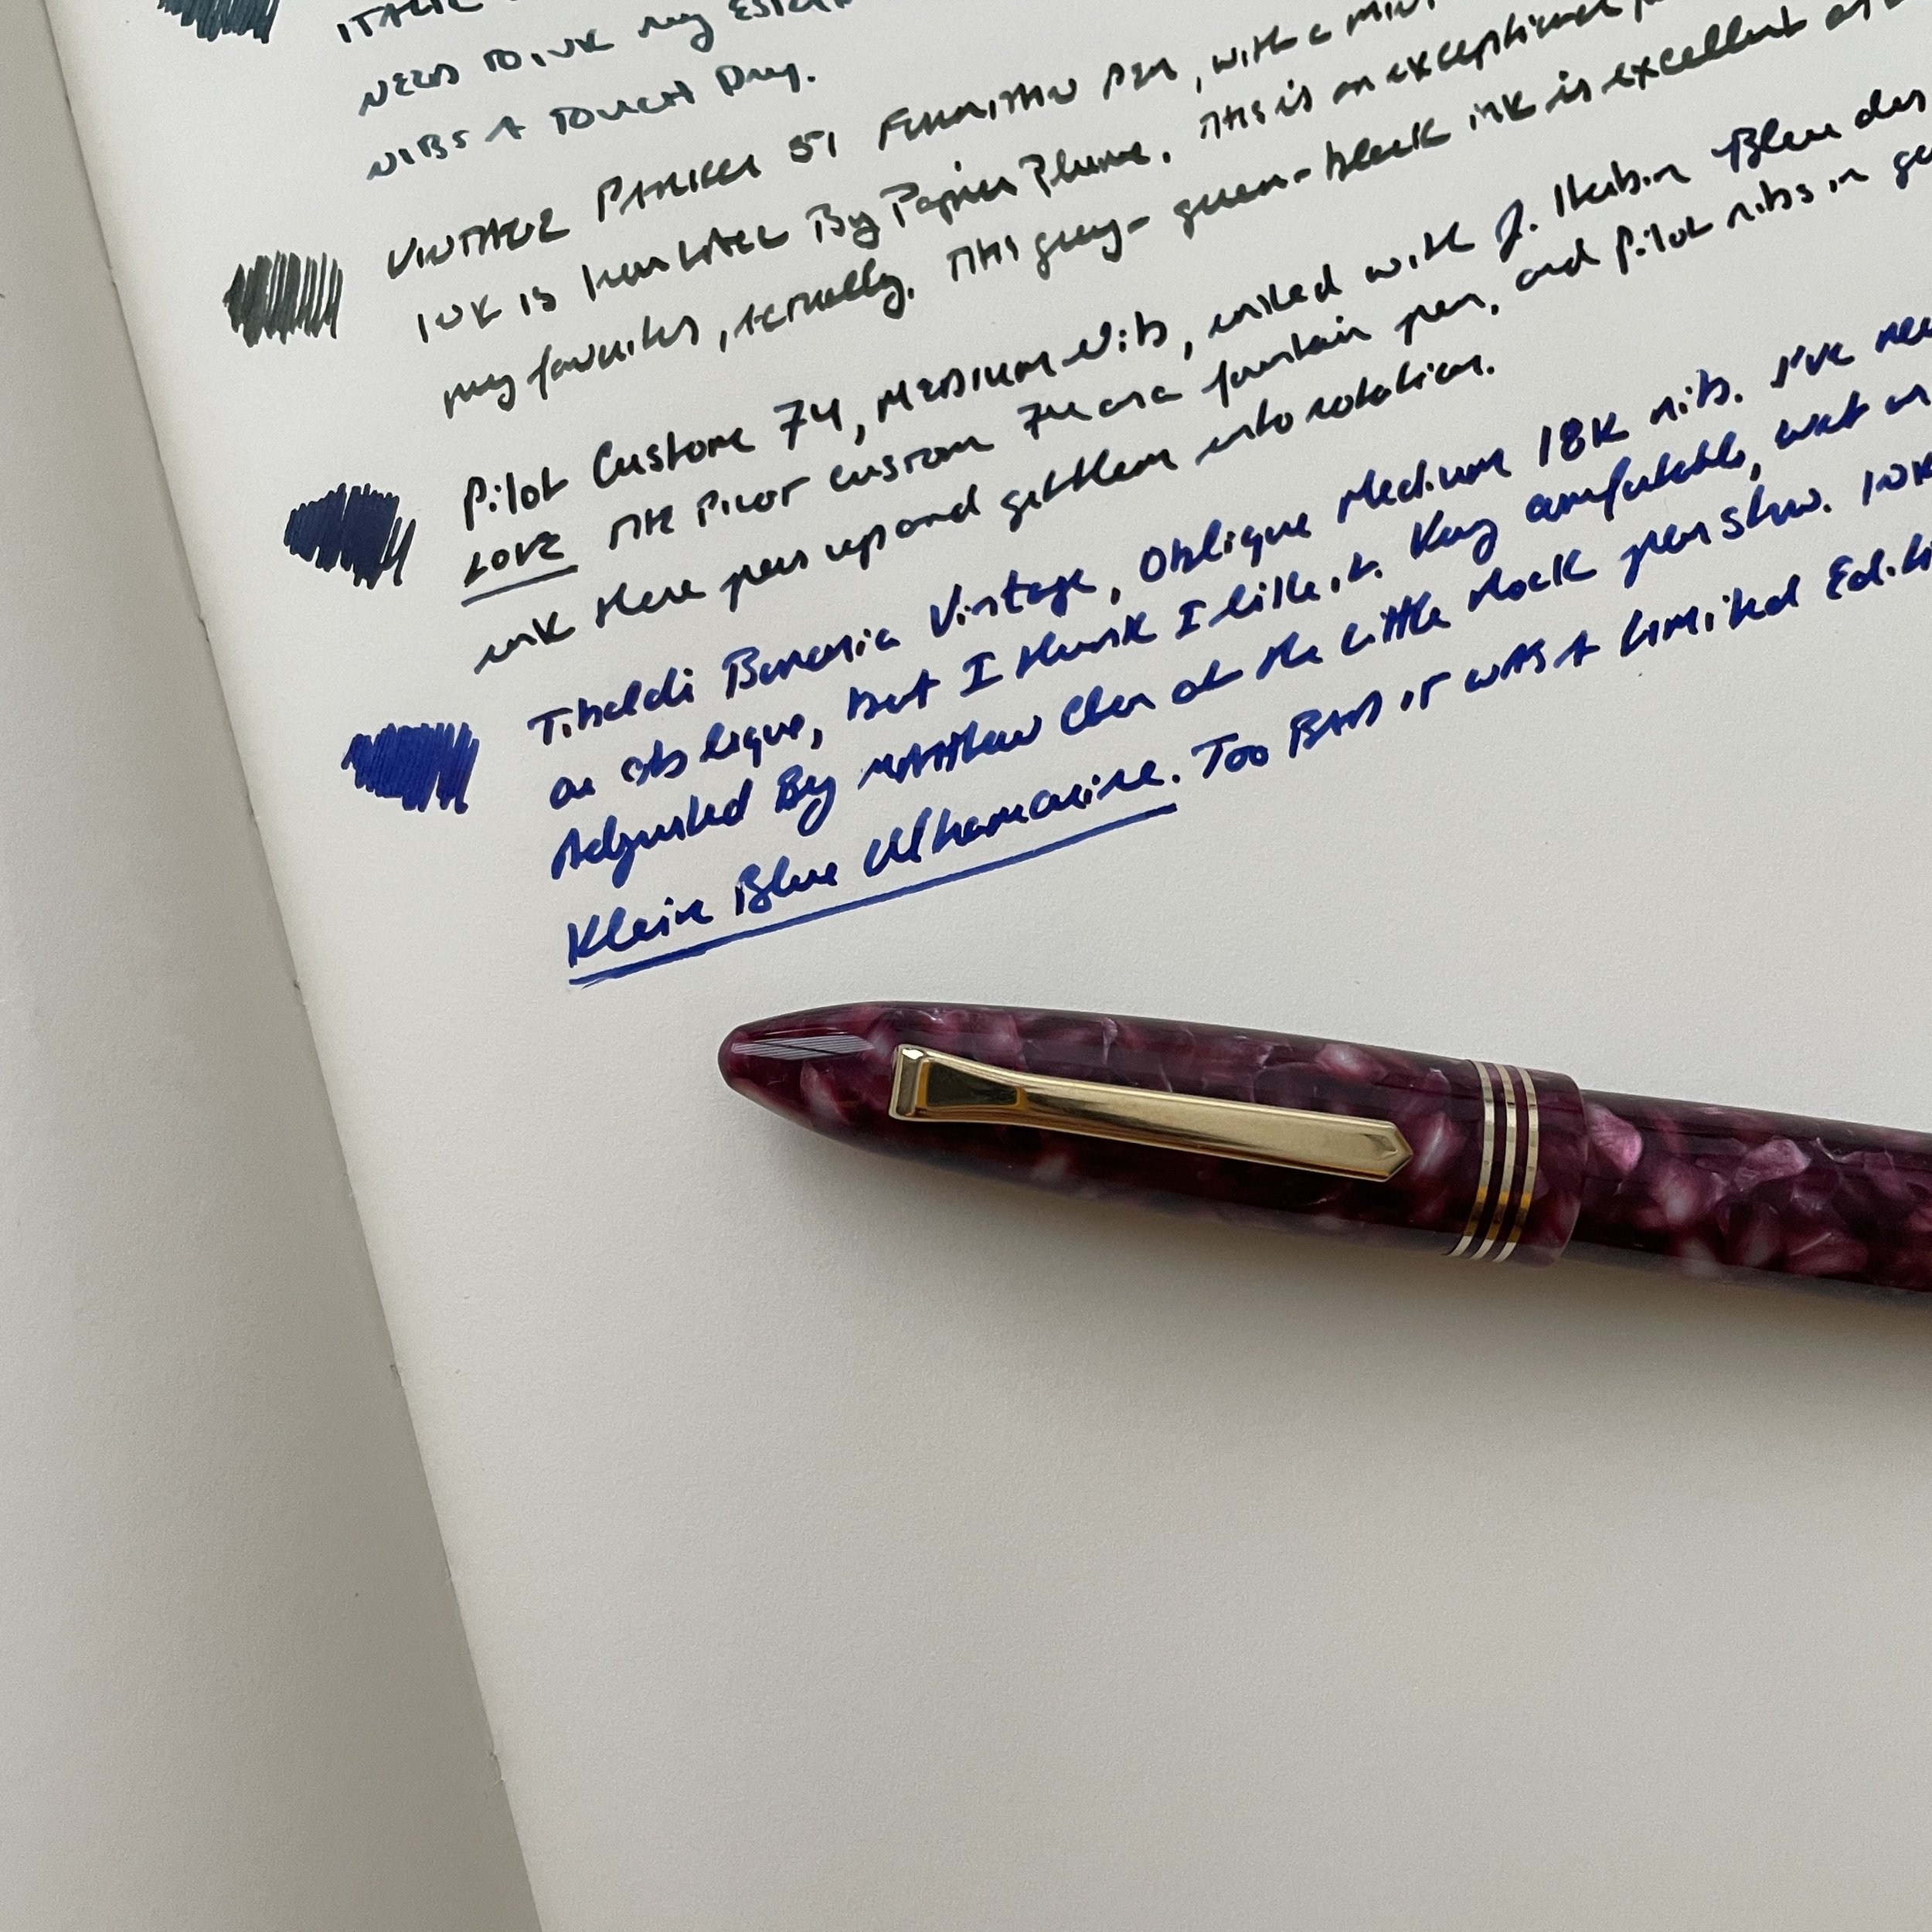 ITALIC
NEED TO INK my ESTER
NIBS A TOUCH Dry.
VINTAGE PARKER 51 FOUNTAIN PEN, with a
INK IS By Papier Plume. This is an exceptional
my favorites, actually. This grey-green-black ink is excellent
Pilot Custom 74, MEDIUM Nib, inked with J. Herbin Bleu des
LOVE THE PILOT CUSTOM 74 as a fountain pen, and Pilot nibs in
ink these pens up and get them into rotation.
Tibaldi Bononia Vintage, Oblique Medium 18K nib. I've
an oblique, but I think I like it. Very comfortable, wet
Adjusted By MATTHEW Chen at the Little Rock pen show. INK
Klein Blue Ultramarine. Too BAD IT WAS A Limited